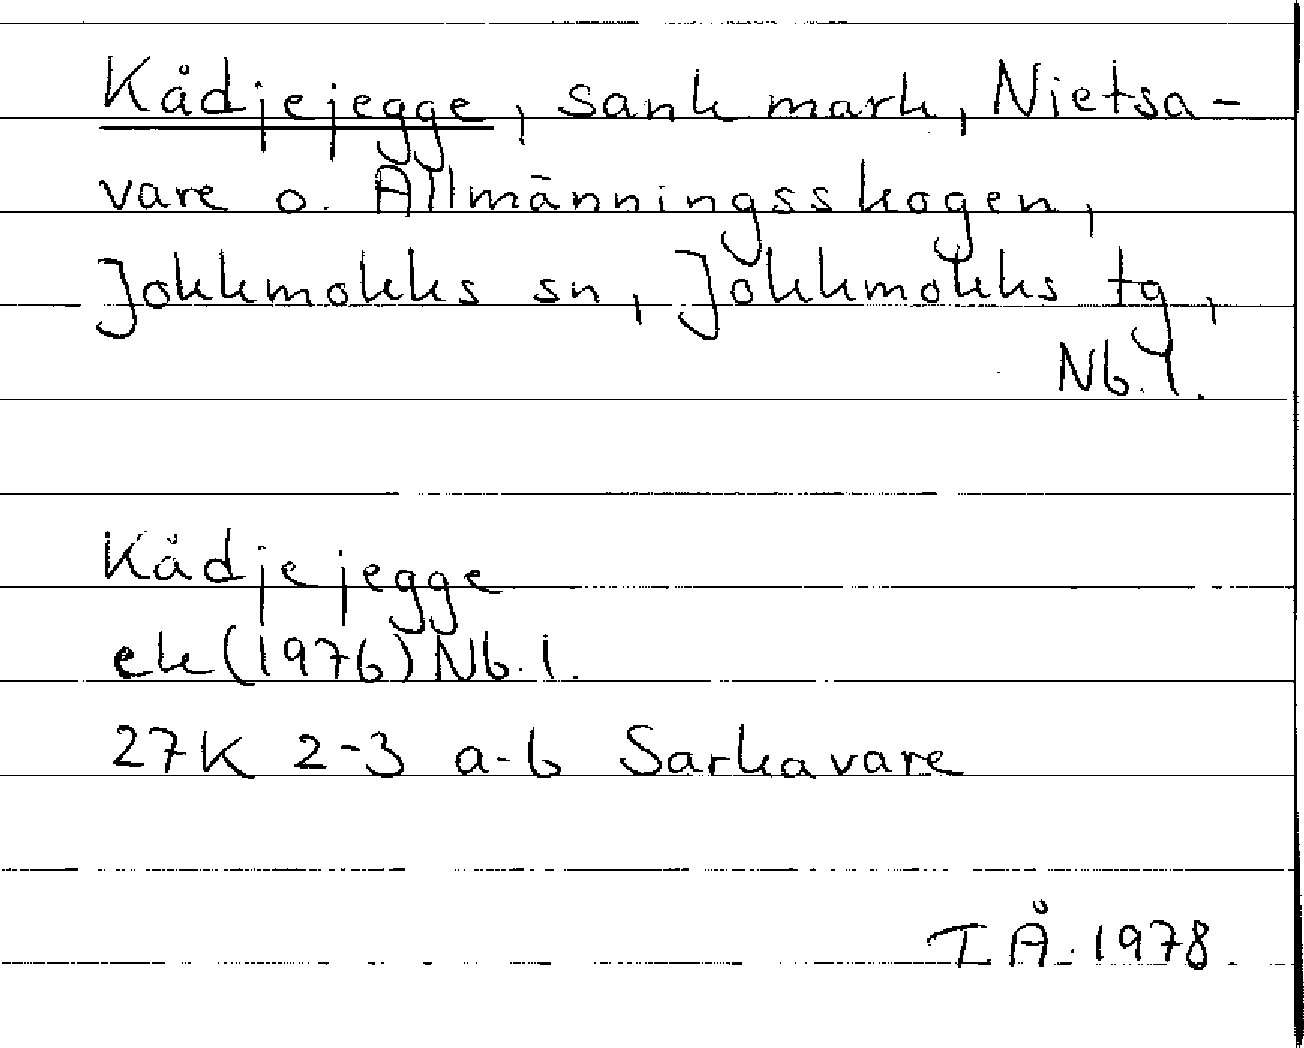 Kådjejegge, sank mark, Nietsa-
vare o. Allmänningsskogen,
Jokkmokks sn, Jokkmokks tg,
Nb. l.
Kådjejegge
ek (1976) Nb. l.
27K 2-3 a-b Sarkavare
I Å. 1978.